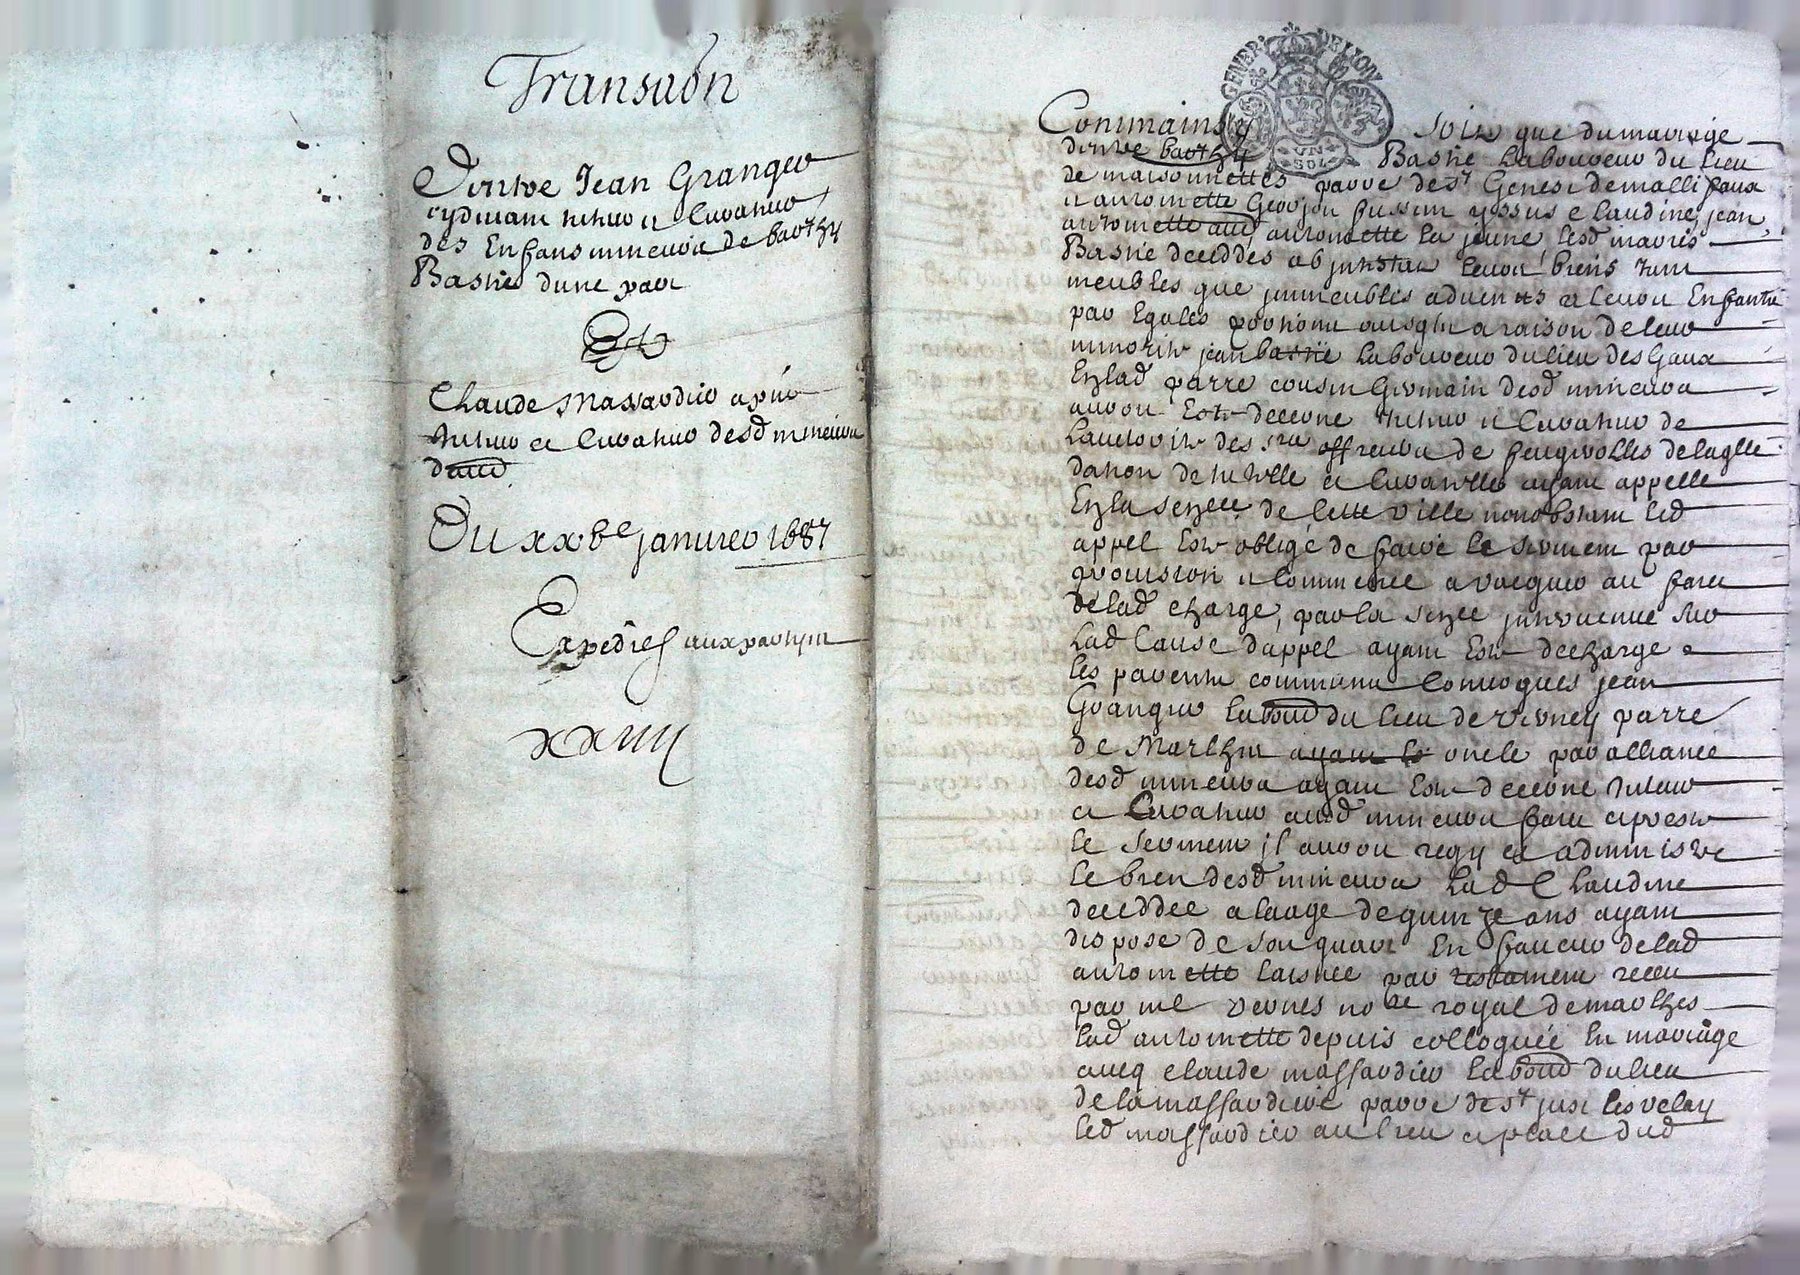 Transaôn
Entre Jean Granger
cydevant tuteur et Curateur
des Enfans mineurs de barthy
Bastie dune part
Et
Claude Massardier apñt
tuteur et Curateur desd mineurs
dauĩ
Du xxbe janvier 1687
Expediés aux partyes
xxiiij
GENERL DE LION
UN SOL
Comme ainsy soit que du mariage
dentre barthy Bastie laboureur du lieu
de maisonnettes parre de st Genest de mallifaux
et anthoinette Georjon fussent yssus claudine, jean,
anthoinette et au anthoinette la jeune lesd mariés
Bastie deceddés ab intestat leurs biens tant
meubles que immeubles advenus a leurs Enfants
par Egales portions ausqls a raison de leur
minorite jean bastie laboureur du lieu des Gaux
Enlad parre cousin Germain desd mineurs
auroit Este decerné tuteur et Curateur de
lauctorite des srs officiers de feugerolles de laqlle
dation de tutelle et Curatelle ayant appelle
En la seneé de cette ville nonobstant led
appel Este obligé de faire le serment par
provision et commencé a vacquer au faict
delad charge, par la sence intervenue sur
lad Cause dappel ayant Esté decharge et
les parents communs convoqués jean
Granger laboud du lieu de parre
de Marlhes oncle par alliance
desd mineurs ayant Este decerné tuteur
et Curateur ausd mineurs faict et preste
le serment il auroit regy et administré
le bien desd mineurs lad Claudine
deceddée a laage de quinze ans ayant
disposé de son quart En faveur delad
anthoinette laisnée par testament receu
par me vernes nore royal de marlhes
lad anthoinette depuis colloquée En mariage
avecq claude massardier laboud du lieu
de la massardiere parre de st just les velay
led massardier au lieu et place dud